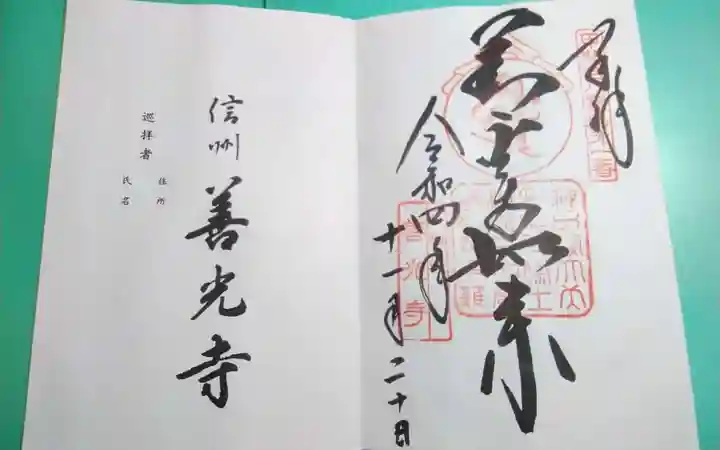 奉拝
善光寺如来
令和四年
十一月二十日
善光寺
信州 善光寺
巡拝者
住所
氏名